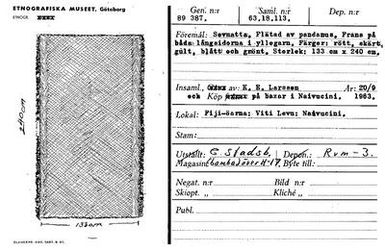 ETNOGRAFISKA MUSEET, Göteborg
240cm
133cm
Gen. n:r
89 387.
S. n:r
63.18.113.
Dep. n:r
Föremål: Sovmatta, Flätad av pandanus, Frans på
båda långsidorna i yllegarn. Färger: rött, skärt,
gult, blått och grönt. Storlek: 133 cm x 240 cm.
Insaml. av K. E. Larsson År: 20/9
och Köp på bazar i Naivucini. 1963.
Lokal: Fijiöarna: Viti Levu; Naivucini.
Stam:
Utställt: Depon. Rvm-3.
Magasin: Byte till:
Negat. n:r Bild n:r
Skiopt. „ Kliché „
Publ.